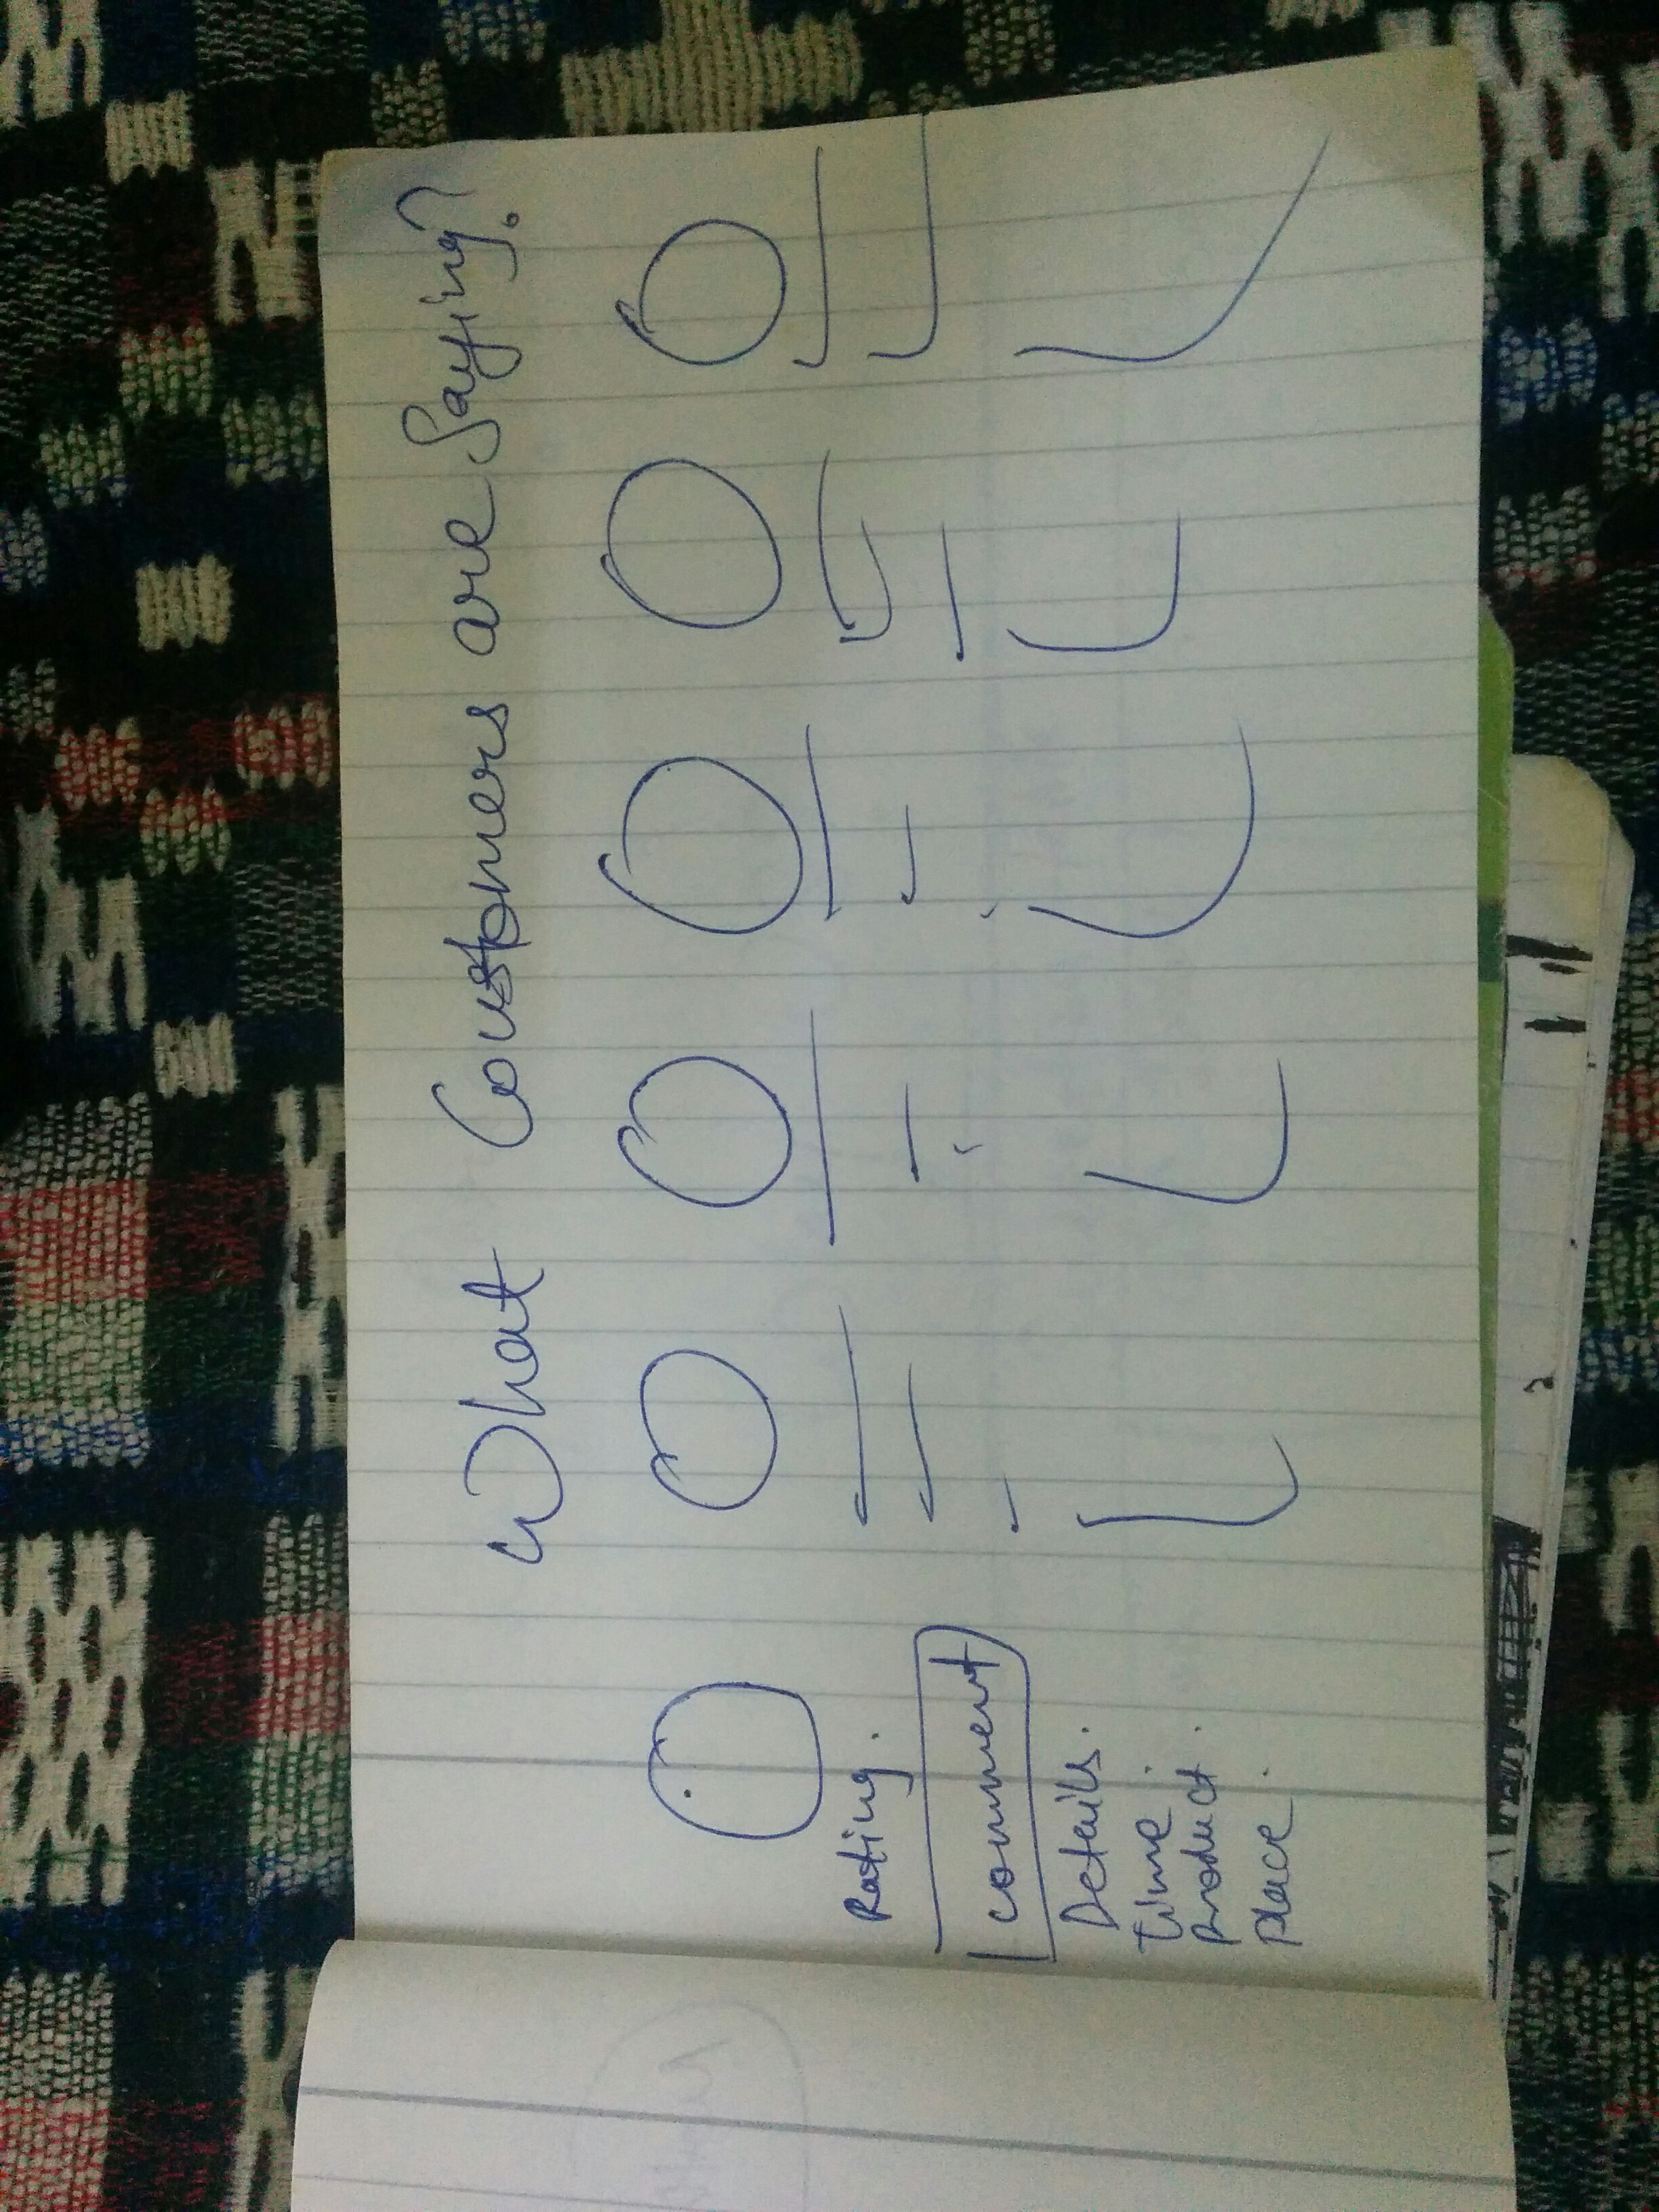 What Coustomers are Saying?
Rating.
comment
Details.
time.
Product.
place.
2